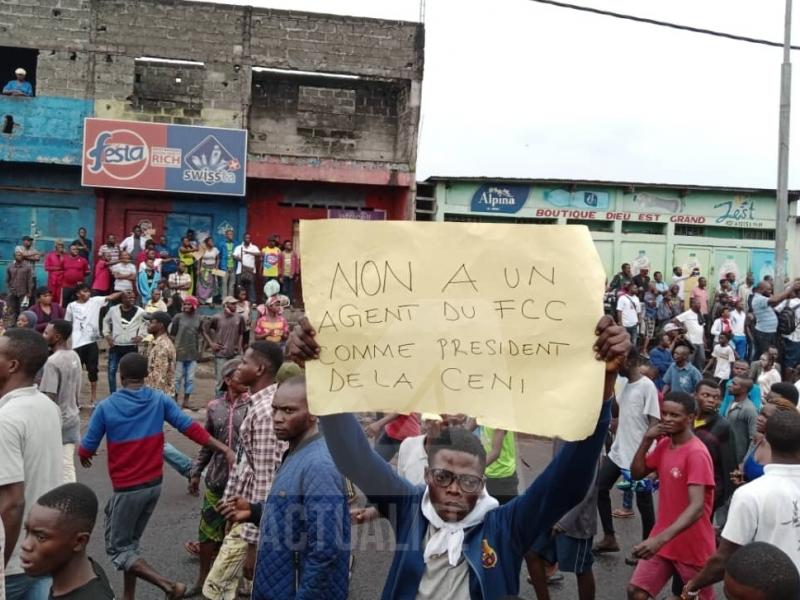 festa
RICH
swissta
Alpina
Zest
BOUTIQUE DIEU EST GRAND
NON A UN
AGENT DU FCC
COMME PRESIDENT
DE LA CENI
ACTUALI